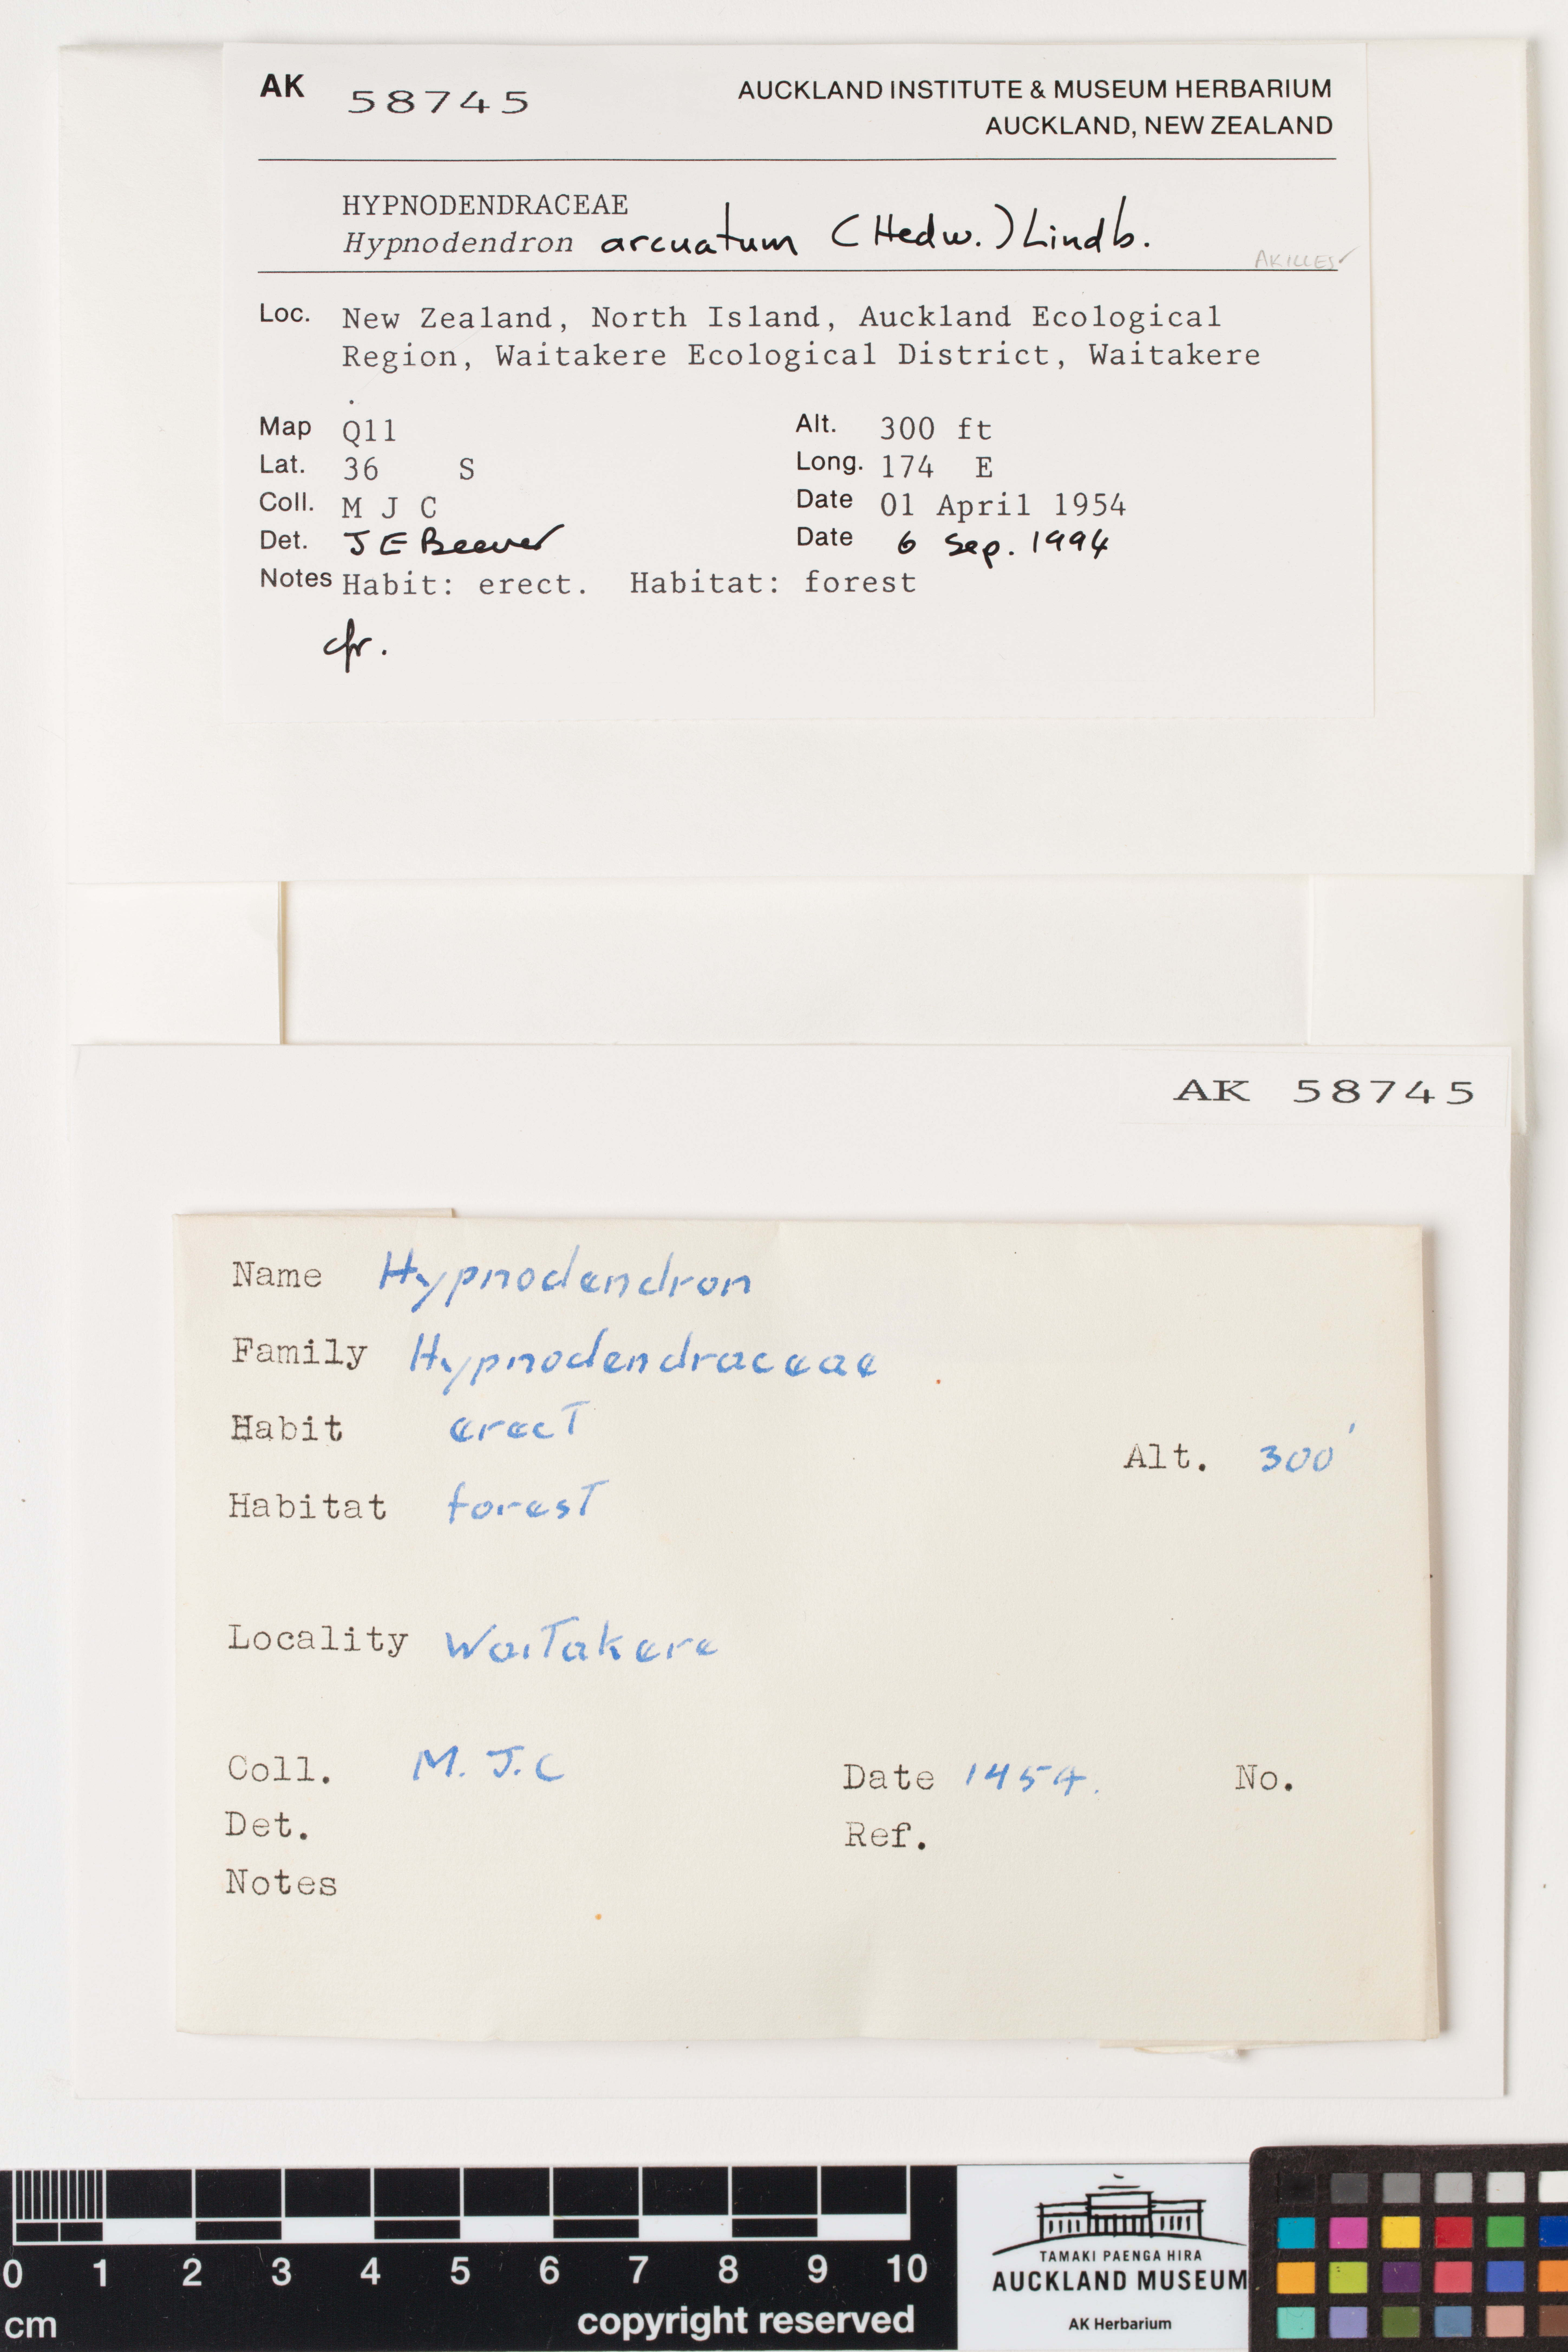 AK 58745
AUCKLAND INSTITUTE & MUSEUM HERBARIUM
AUCKLAND, NEW ZEALAND
HYPNODENDRACEAE
Hypnodendron arcuatum (Hedw.) Lindb.
AKILLES✓
Loc. New Zealand, North Island, Auckland Ecological
Region, Waitakere Ecological District, Waitakere
.
Map Q11 Alt. 300 ft
Lat. 36 S Long. 174 E
Coll. M J C Date 01 April 1954
Det. J E Beever Date 6 Sep. 1994
Notes Habit: erect. Habitat: forest
cfr.
AK 58745
Name Hypnodendron
Family Hypnodendraceae
Habit erect
Alt. 300'
Habitat forest
Locality Waitakere
Coll. M. J. C Date 1454. No.
Det. Ref.
Notes
0 1 2 3 4 5 6 7 8 9 10
cm copyright reserved
TAMAKI PAENGA HIRA
AUCKLAND MUSEUM
AK Herbarium